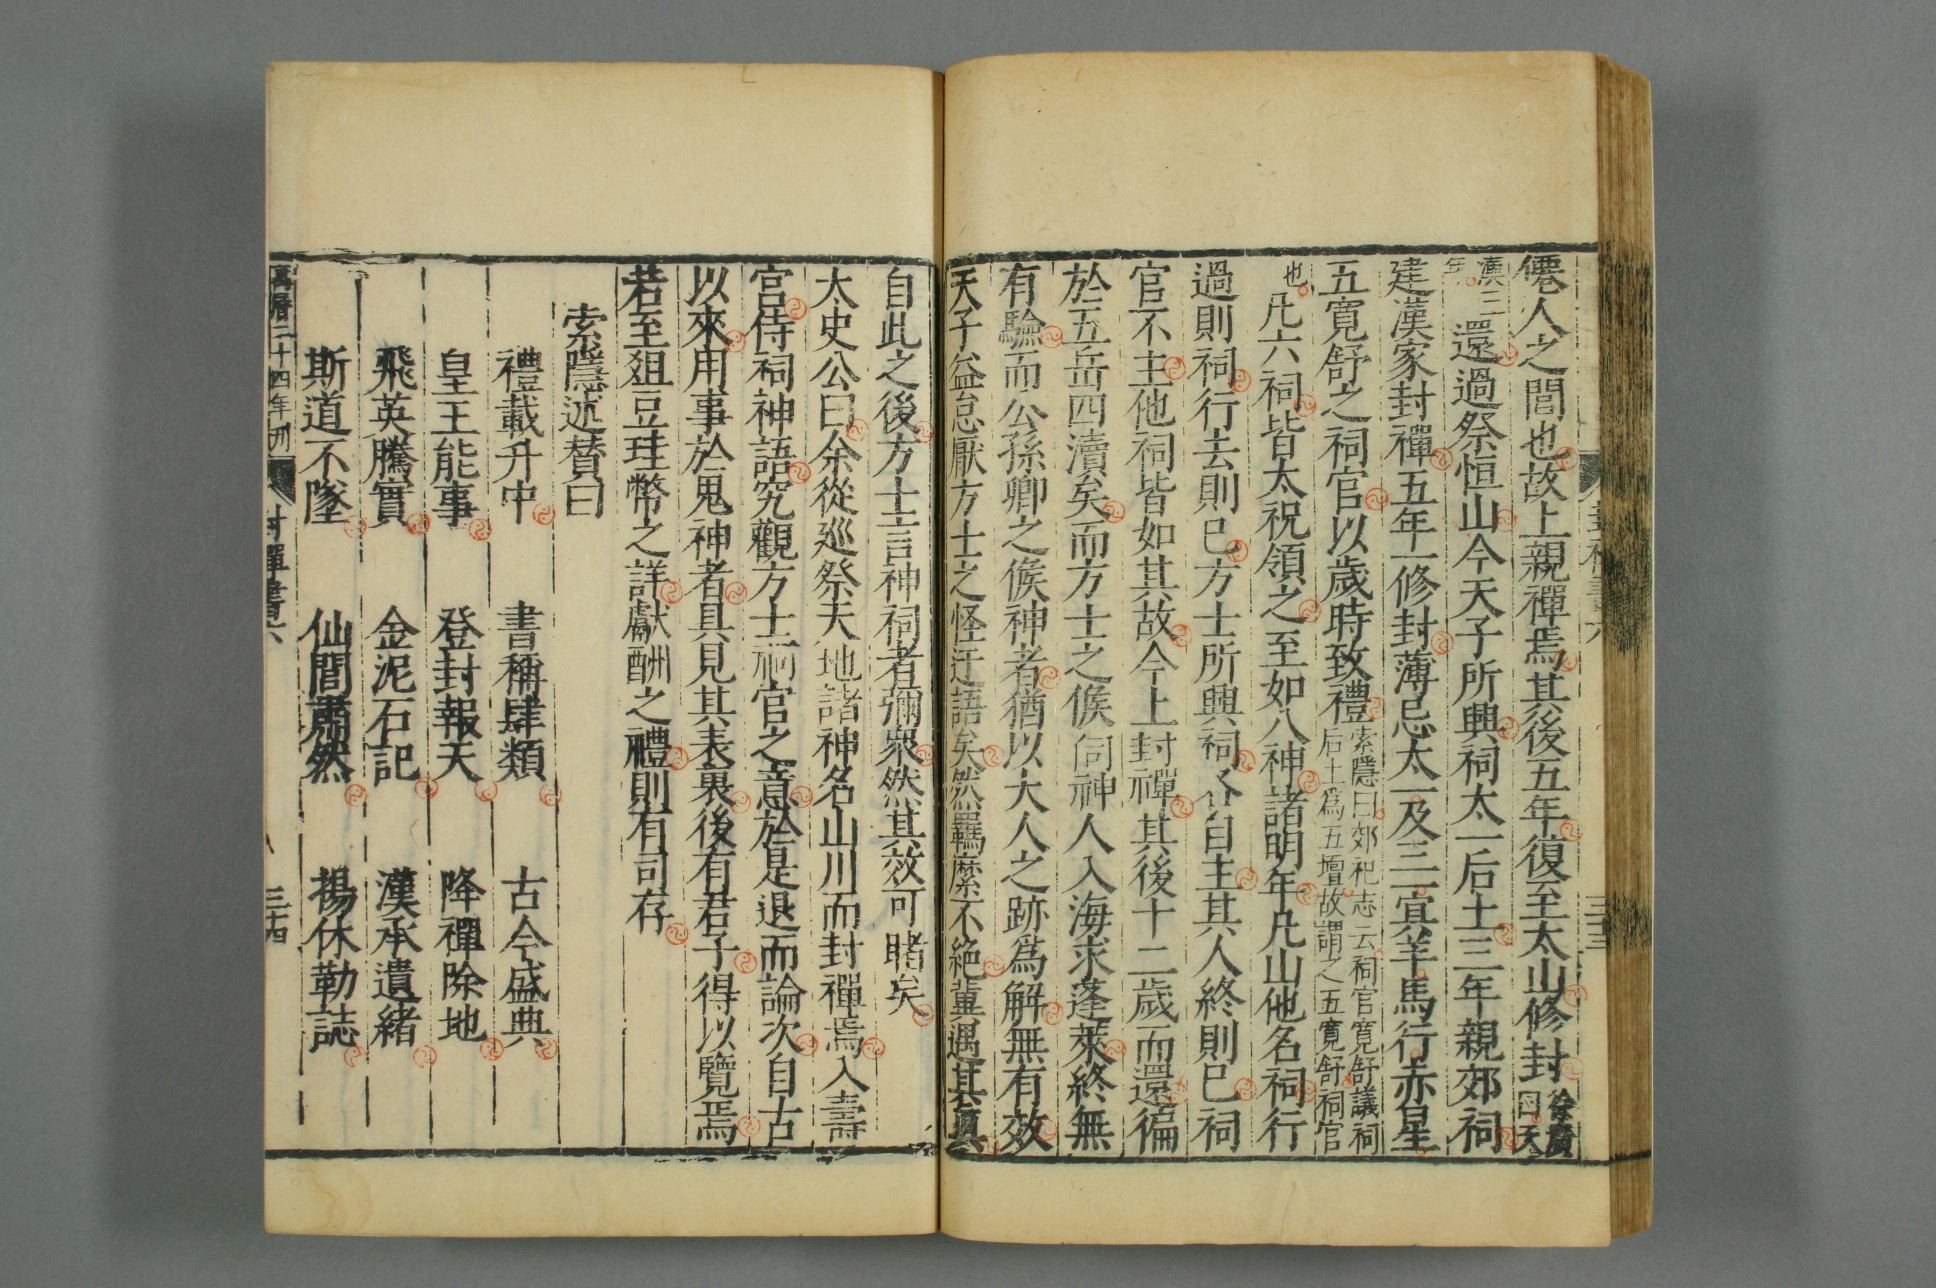 僊人之閭也故上親禪焉其後五年復至太山修封徐廣曰天
漢三年還過祭恒山今天子所興祠太一后土三年親郊祠
建漢家封禪五年一修封薄忌太一及三一冥羊馬行赤星
五寬舒之祠官以歲時致禮索隱曰郊祀志云祠官寬舒議祠后土爲五壇故謂之五寬舒祠官
也凡六祠皆太祝領之至如八神諸明年凡山他名祠行
過則祠行去則已方士所興祠各自主其人終則已祠
官不主他祠皆如其故今上封禪其後十二歲而還徧
於五岳四瀆矣而方士之候伺神人入海求蓬萊終無
有驗而公孫卿之候神者猶以大人之跡爲解無有效
天子益怠厭方士之怪迂語矣然羈縻不絶冀遇其眞
自此之後方士言神祠者彌衆然其效可睹矣
太史公曰余從巡祭天地諸神名山川而封禪焉入壽
宮侍祠神語究觀方士祠官之意於是退而論次自古
以來用事於鬼神者具見其表裏後有君子得以覽焉
若至爼豆珪幣之詳獻酬之禮則有司存
索隱述賛曰
禮載升中 書稱肆類 古今盛典
皇王能事 登封報天 降禪除地
飛英騰實 金泥石記 漢承遺緒
斯道不墜 仙閭肅然 揚休勒誌
萬曆二十四年刊 封禪書六 三十四